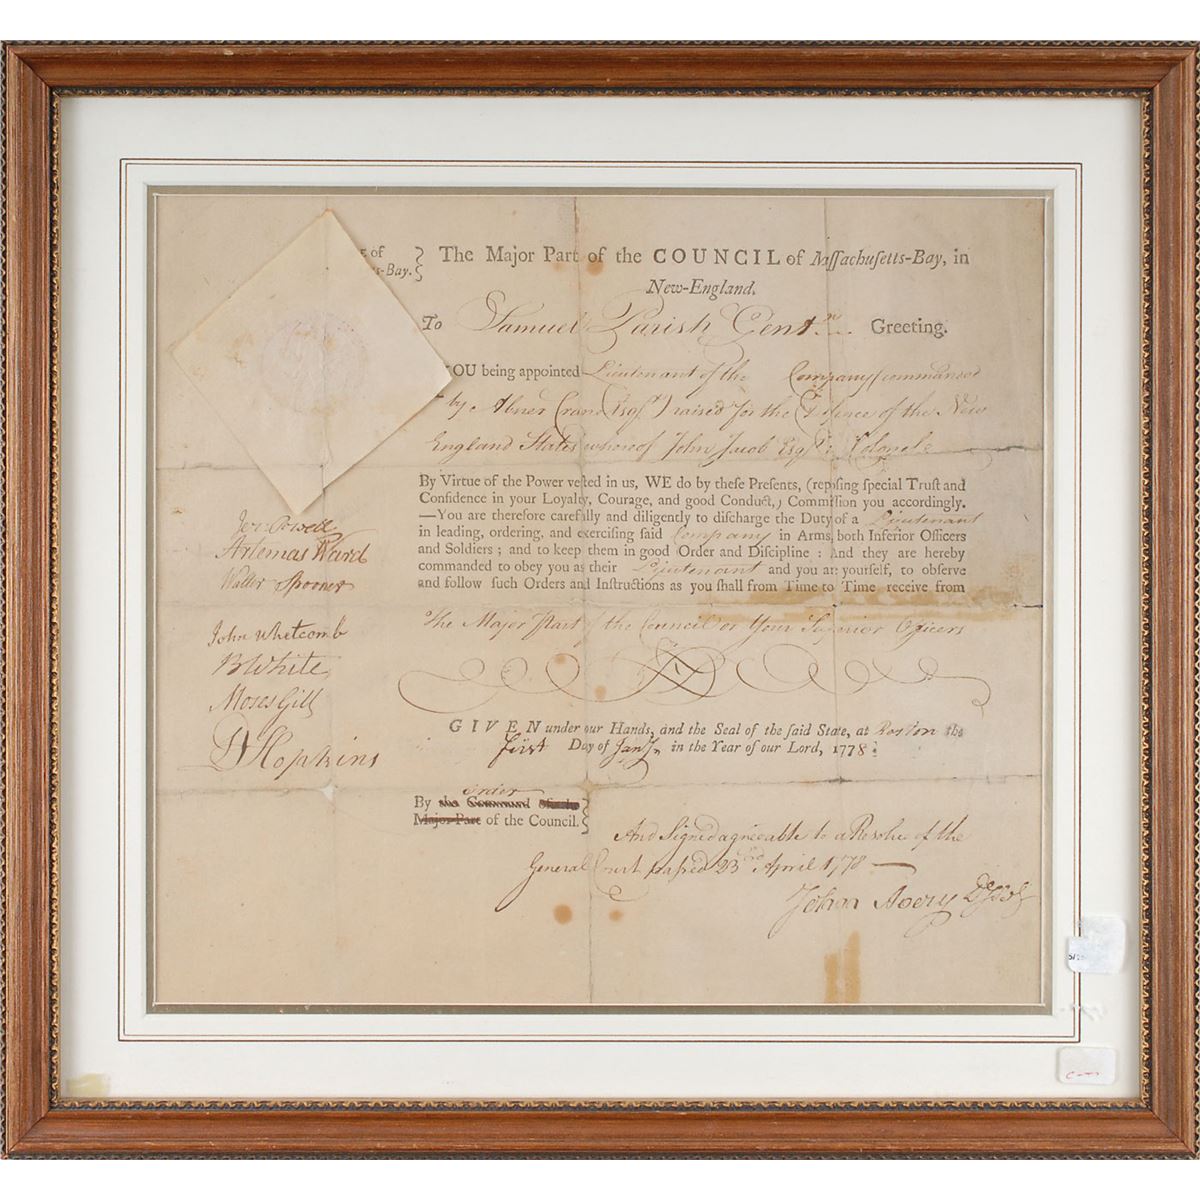 of
s-Bay.
The Major Part of the COUNCIL of Massachusetts-Bay, in
New-England.
To Samuel Parish Gentn. Greeting.
YOU being appointed Lieutenant of the Company (commanded
by Abner Crane Esqr.) raised for the Defence of the New
England States whereof John Jacob Esqr. is Colonel
By Virtue of the Power vested in us, WE do by these Presents, (reposing special Trust and
Confidence in your Loyalty, Courage, and good Conduct,) Commission you accordingly.
—You are therefore carefully and diligently to discharge the Duty of a Lieutenant
in leading, ordering, and exercising said Company in Arms, both Inferior Officers
and Soldiers ; and to keep them in good Order and Discipline : And they are hereby
commanded to obey you as their Lieutenant and you are yourself, to observe
and follow such Orders and Instructions as you shall from Time to Time receive from
The Major Part of the Council or Your Superior Officers
Jer: Powell
Artemas Ward
Walter Spooner
John Whetcomb
B White
Moses Gill
D Hopkins
GIVEN under our Hands, and the Seal of the said State, at Boston the
first Day of Jany. in the Year of our Lord, 1778.
order
By the Command of the
Major Part of the Council.
And Signed agreeable to a Resolve of the
General Court passed 23rd April 1778
John Avery Dy Secy